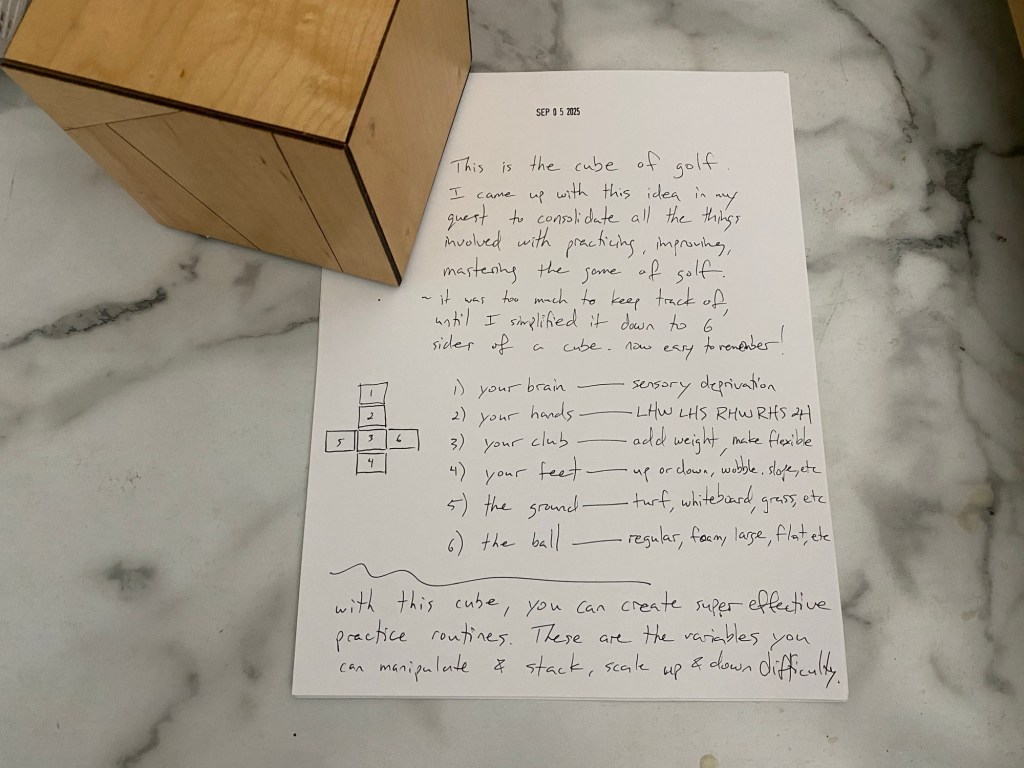 SEP 05 2025
This is the cube of golf.
I came up with this idea in my
quest to consolidate all the things
involved with practicing, improving,
mastering the game of golf.
~ it was too much to keep track of,
until I simplified it down to 6
sides of a cube. now easy to remember!
1) your brain — sensory deprivation
2) your hands — LHW LHS RHW RHS 2H
3) your club — add weight, make flexible
4) your feet — up or down, wobble, slope, etc
5) the ground — turf, whiteboard, grass, etc
6) the ball — regular, foam, large, flat, etc
1
2
5 3 6
4
with this cube, you can create super effective
practice routines. These are the variables you
can manipulate & stack, scale up & down difficulty.